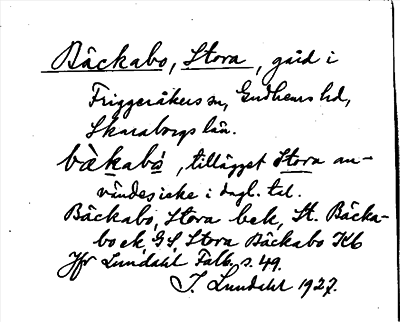 Bäckabo, Stora, gård i
Friggeråkers sn, Gudhems hd,
Skaraborgs län.
bàkabò, tillägget Stora an-
vändes icke i dagl. tal.
Bäckabo, Stora bek, St. Bäcka-
bo ek, GS, Stora Bäckabo Kb
Jfr Lundahl Falb. s. 49.
I. Lundahl 1927.